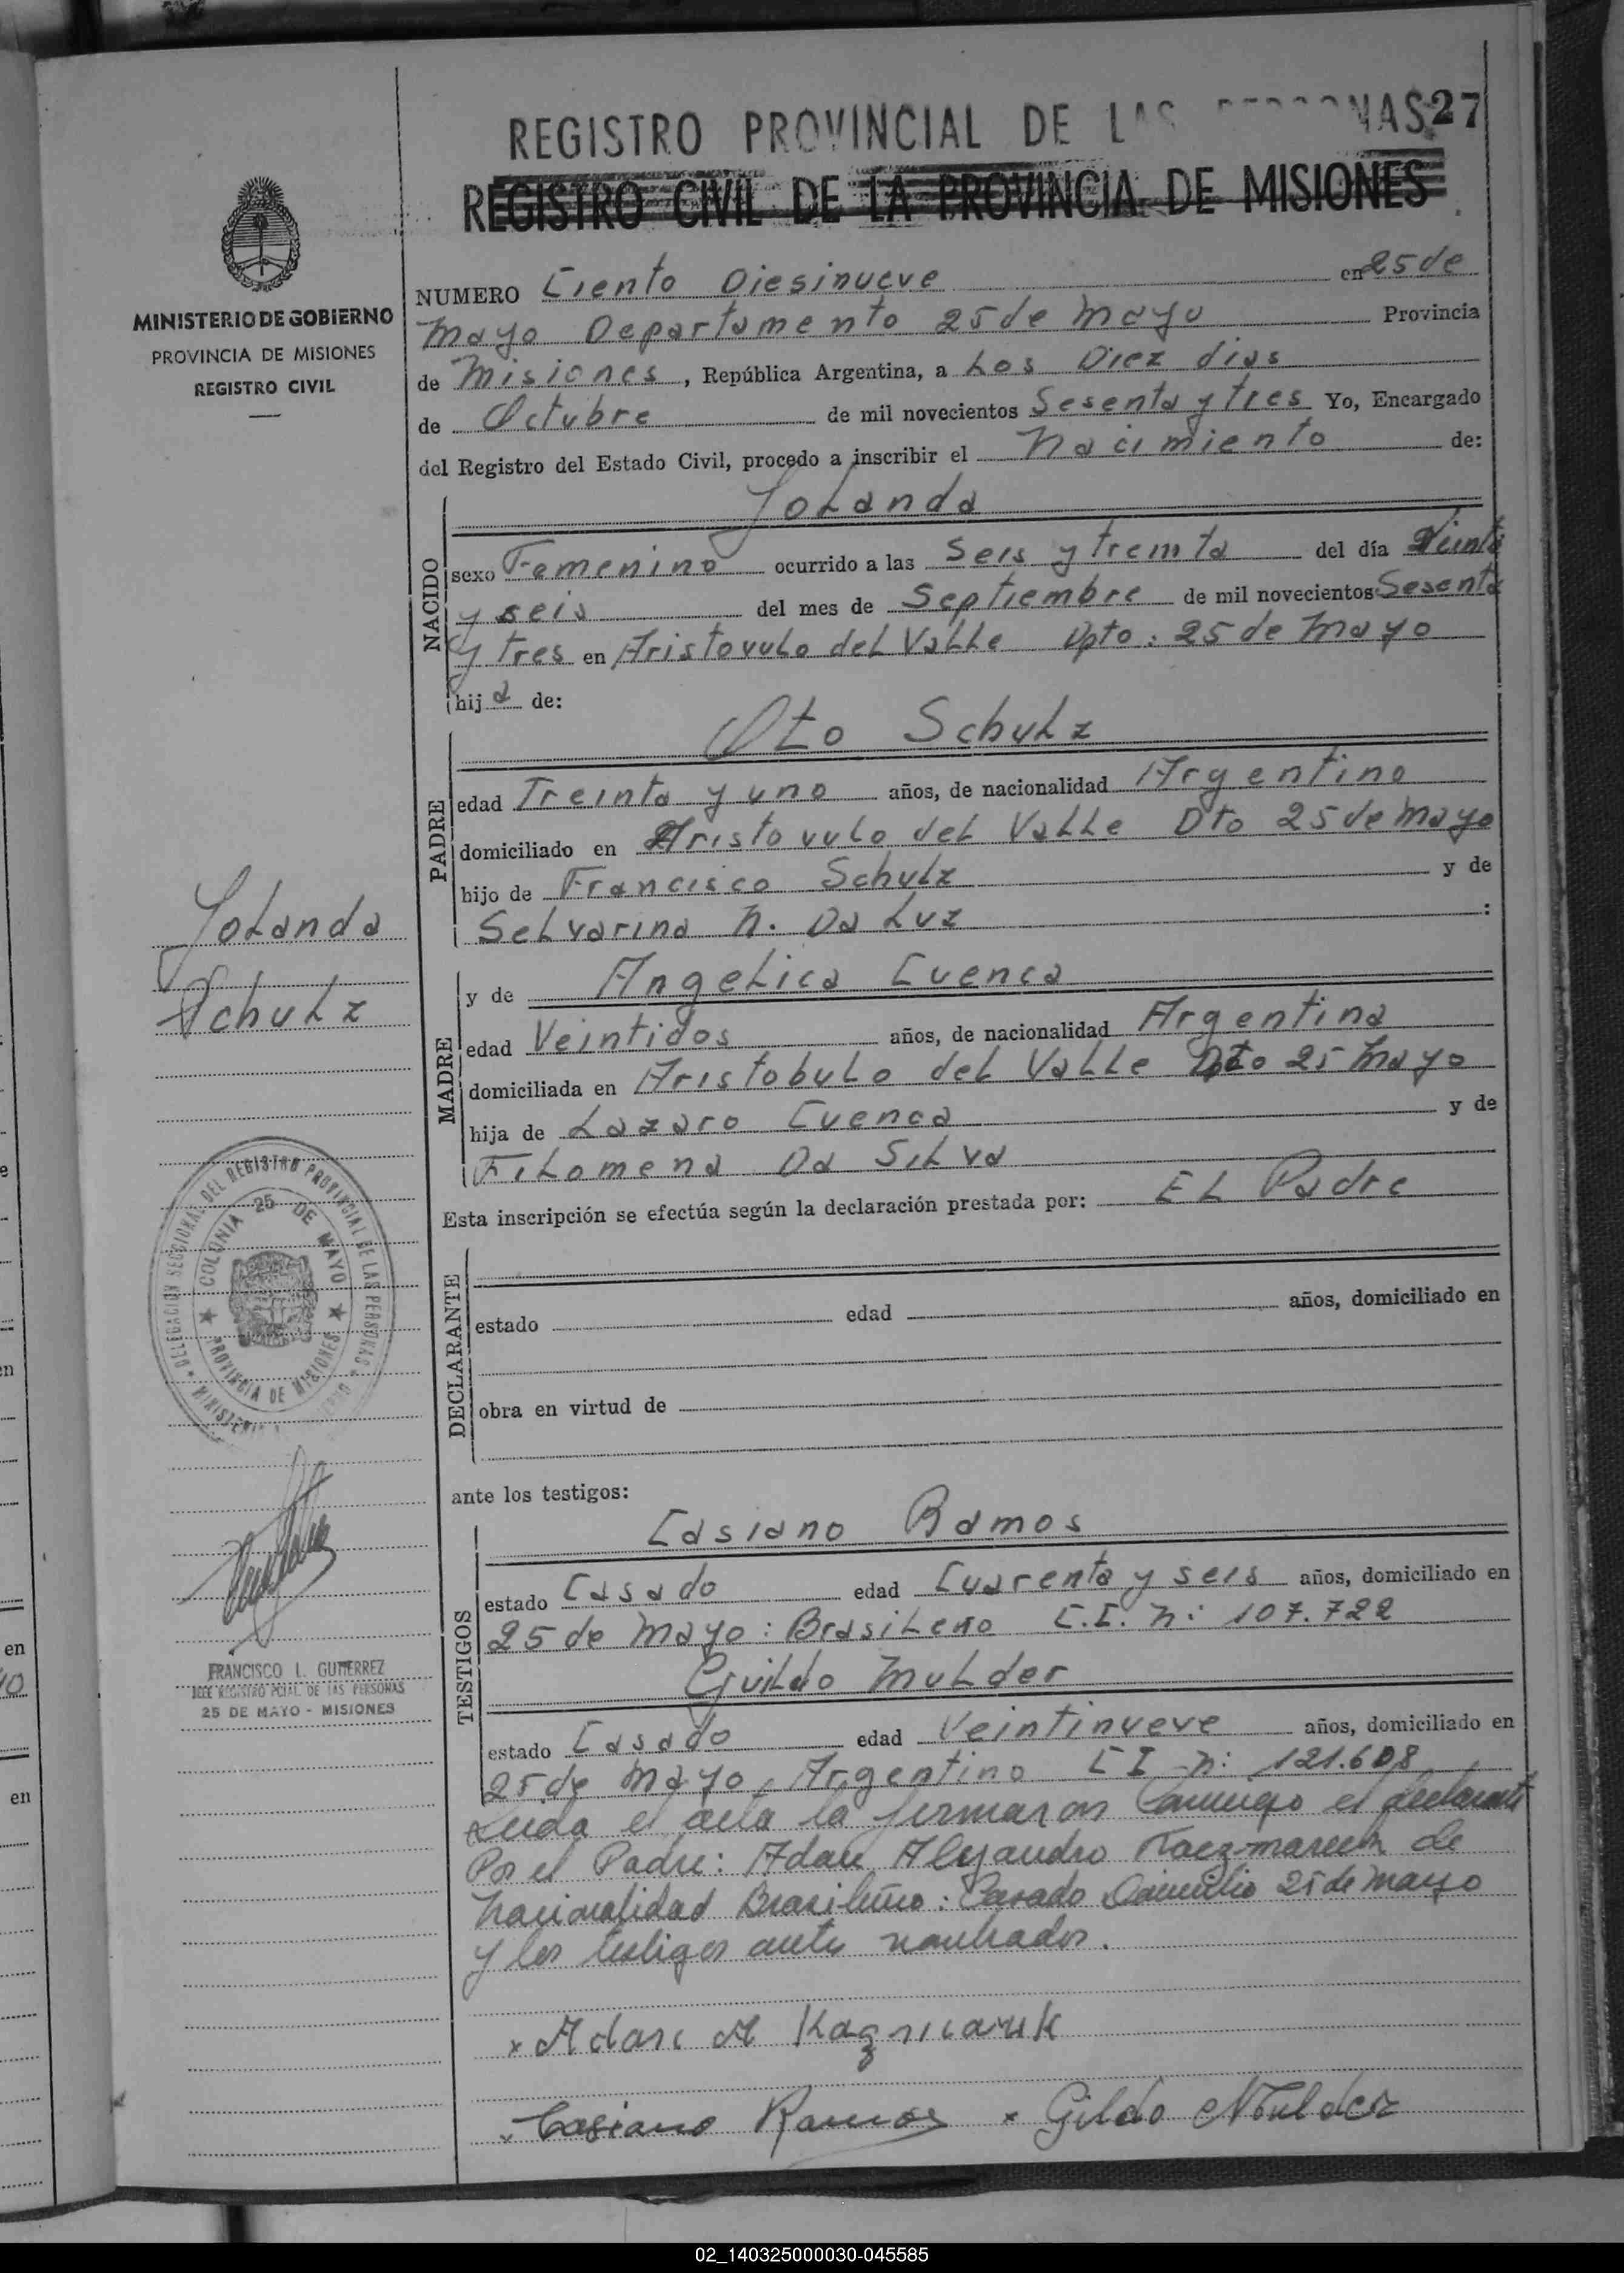 REGISTRO PROVINCIAL DE LAS PERSONAS 27
REGISTRO CIVIL DE LA PROVINCIA DE MISIONES
MINISTERIO DE GOBIERNO
PROVINCIA DE MISIONES
REGISTRO CIVIL
NUMERO Ciento Diesinueve en 25 de
Mayo Departamento 25 de Mayo Provincia
de Misiones, República Argentina, a Los Diez dias
de Octubre de mil novecientos Sesenta y tres Yo, Encargado
del Registro del Estado Civil, procedo a inscribir el Nacimiento de:
NACIDO
Yolanda
sexo Femenino ocurrido a las Seis y treinta del día Veinte
y seis del mes de Septiembre de mil novecientos Sesenta
y tres en Aristovulo del Valle Dpto: 25 de Mayo
hija de:
PADRE
Oto Schulz
edad Treinta y uno años, de nacionalidad Argentino
domiciliado en Aristovulo del Valle Dto 25 de Mayo
hijo de Francisco Schulz y de
Selvarina N. Da Luz :
Yolanda
Schulz
MADRE
y de Angelica Cuenca
edad Veintidos años, de nacionalidad Argentina
domiciliada en Aristobulo del Valle Dto 25 Mayo
hija de Lazaro Cuenca y de
Filomena Da Silva
Esta inscripción se efectúa según la declaración prestada por: El Padre
DELEGACION SECCIONAL DEL REGISTRO PROVINCIAL DE LAS PERSONAS
COLONIA 25 DE MAYO
PROVINCIA DE MISIONES
DECLARANTE
estado edad años, domiciliado en
obra en virtud de
ante los testigos:
TESTIGOS
Casiano Ramos
estado Casado edad Cuarenta y seis años, domiciliado en
25 de Mayo: Brasileño C.I. N: 107.722
Guildo Mulder
estado Casado edad Veintinueve años, domiciliado en
25 de Mayo, Argentino C I N: 121.608
FRANCISCO L. GUTIERREZ
JEFE REGISTRO PCIAL. DE LAS PERSONAS
25 DE MAYO - MISIONES
Leida el acta la firmaron Conmigo el declarante
Por el Padre: Adan Alejandro de
Nacionalidad Brasileño: Casado Domicilio 25 de Mayo
y los testigos ante nombrados.
x Adan A
x Casiano Ramos x Gildo Mulder
02_140325000030-045585